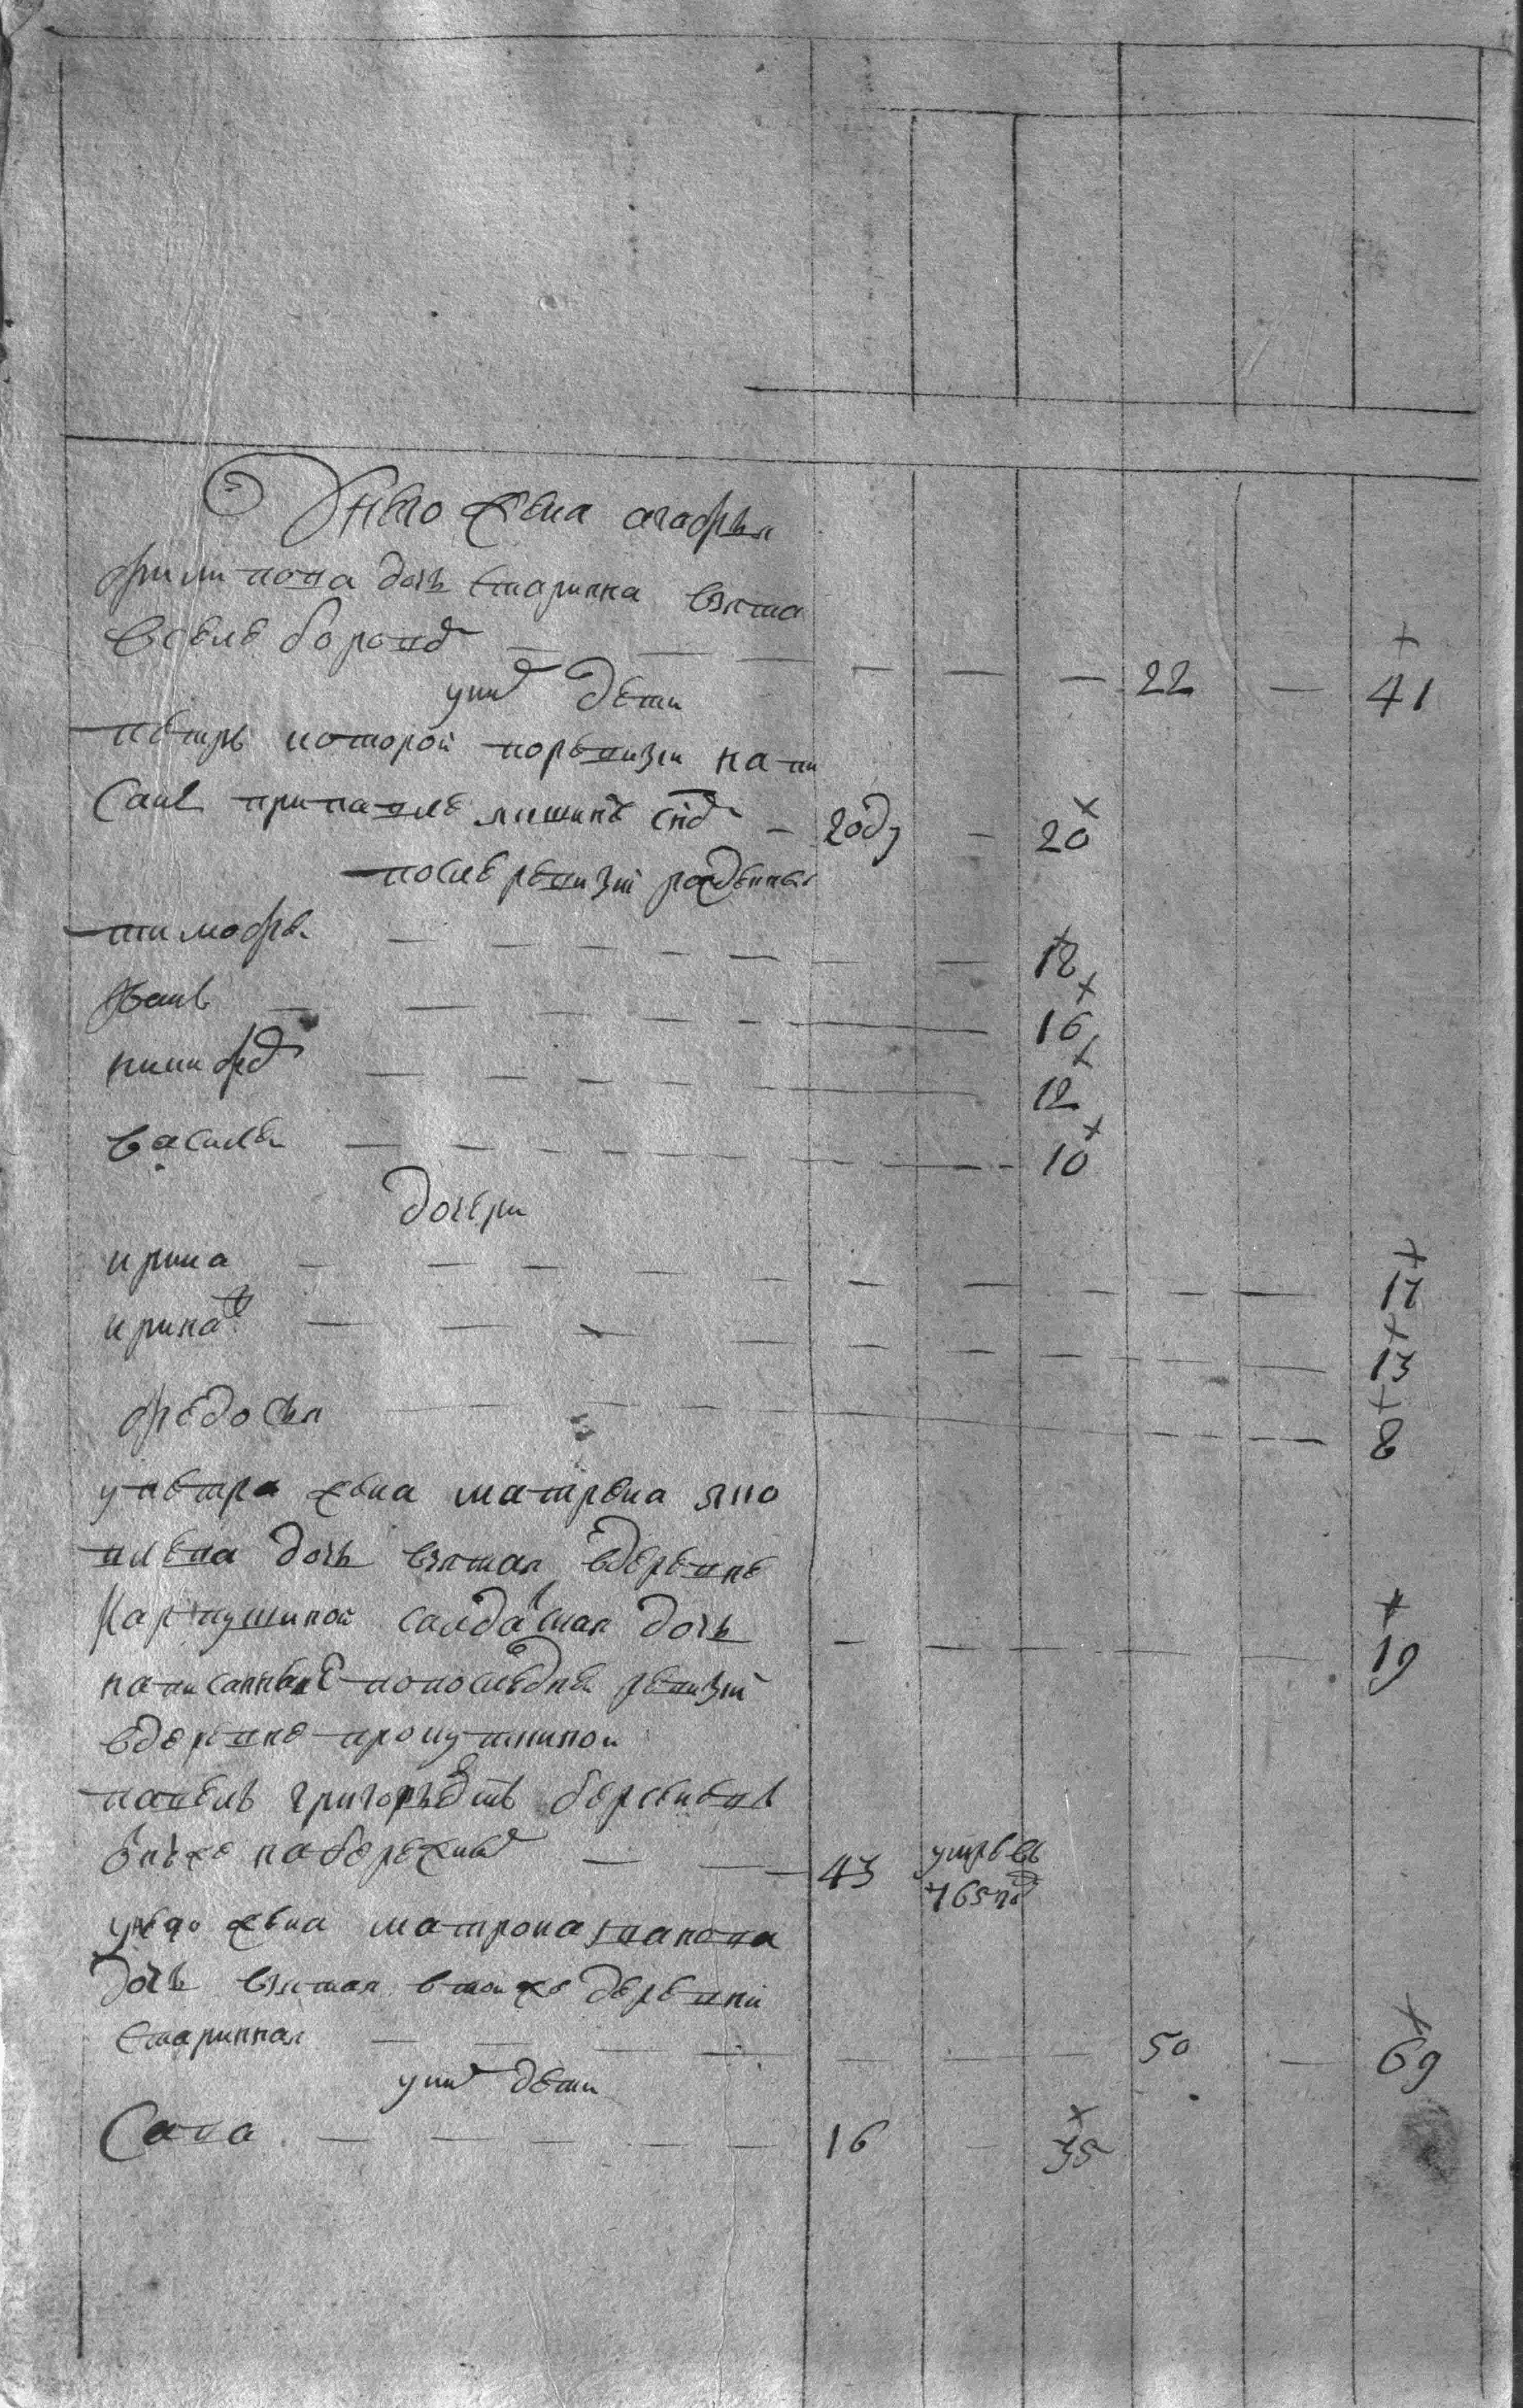 У него жена агафья
филипова дочь старинна взята
в селе борова — — — — — — 22 — 41
у них дети
петръ которой по ревизии напи
санъ при павле лишине сыде — 2 году — 20
после ревизии рожденныя
тимофей — — — — — — 18
иванъ — — — — — — 16
никифоръ — — — — — — 12
василей — — — — — — 10
дочери
ирина — — — — — — 17
ирина ж — — — — — — 13
федосья — — — — — — 8
у петра жена матрена яко
влева дочь взятая в деревне
карпушиной салдацкая дочь — — — — 19
написанные по последней ревизии
в деревне прокуткиной
павелъ григорьевъ сынъ берсеневъ
он же набережной — — 43 умре въ
765 году
у него жена матрона панова
дочь взятая в той же деревни
старинная — — — — — — 50 — 69
у них дети
сава — — — — — 16 — 35